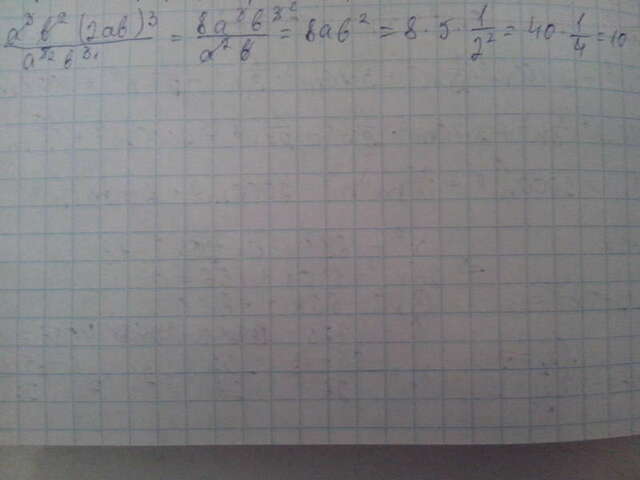 a³b²(2ab)³ / a⁵²b³¹ = 8a³b³ / a²b = 8ab² = 8·5·1/2² = 40·1/4 = 10